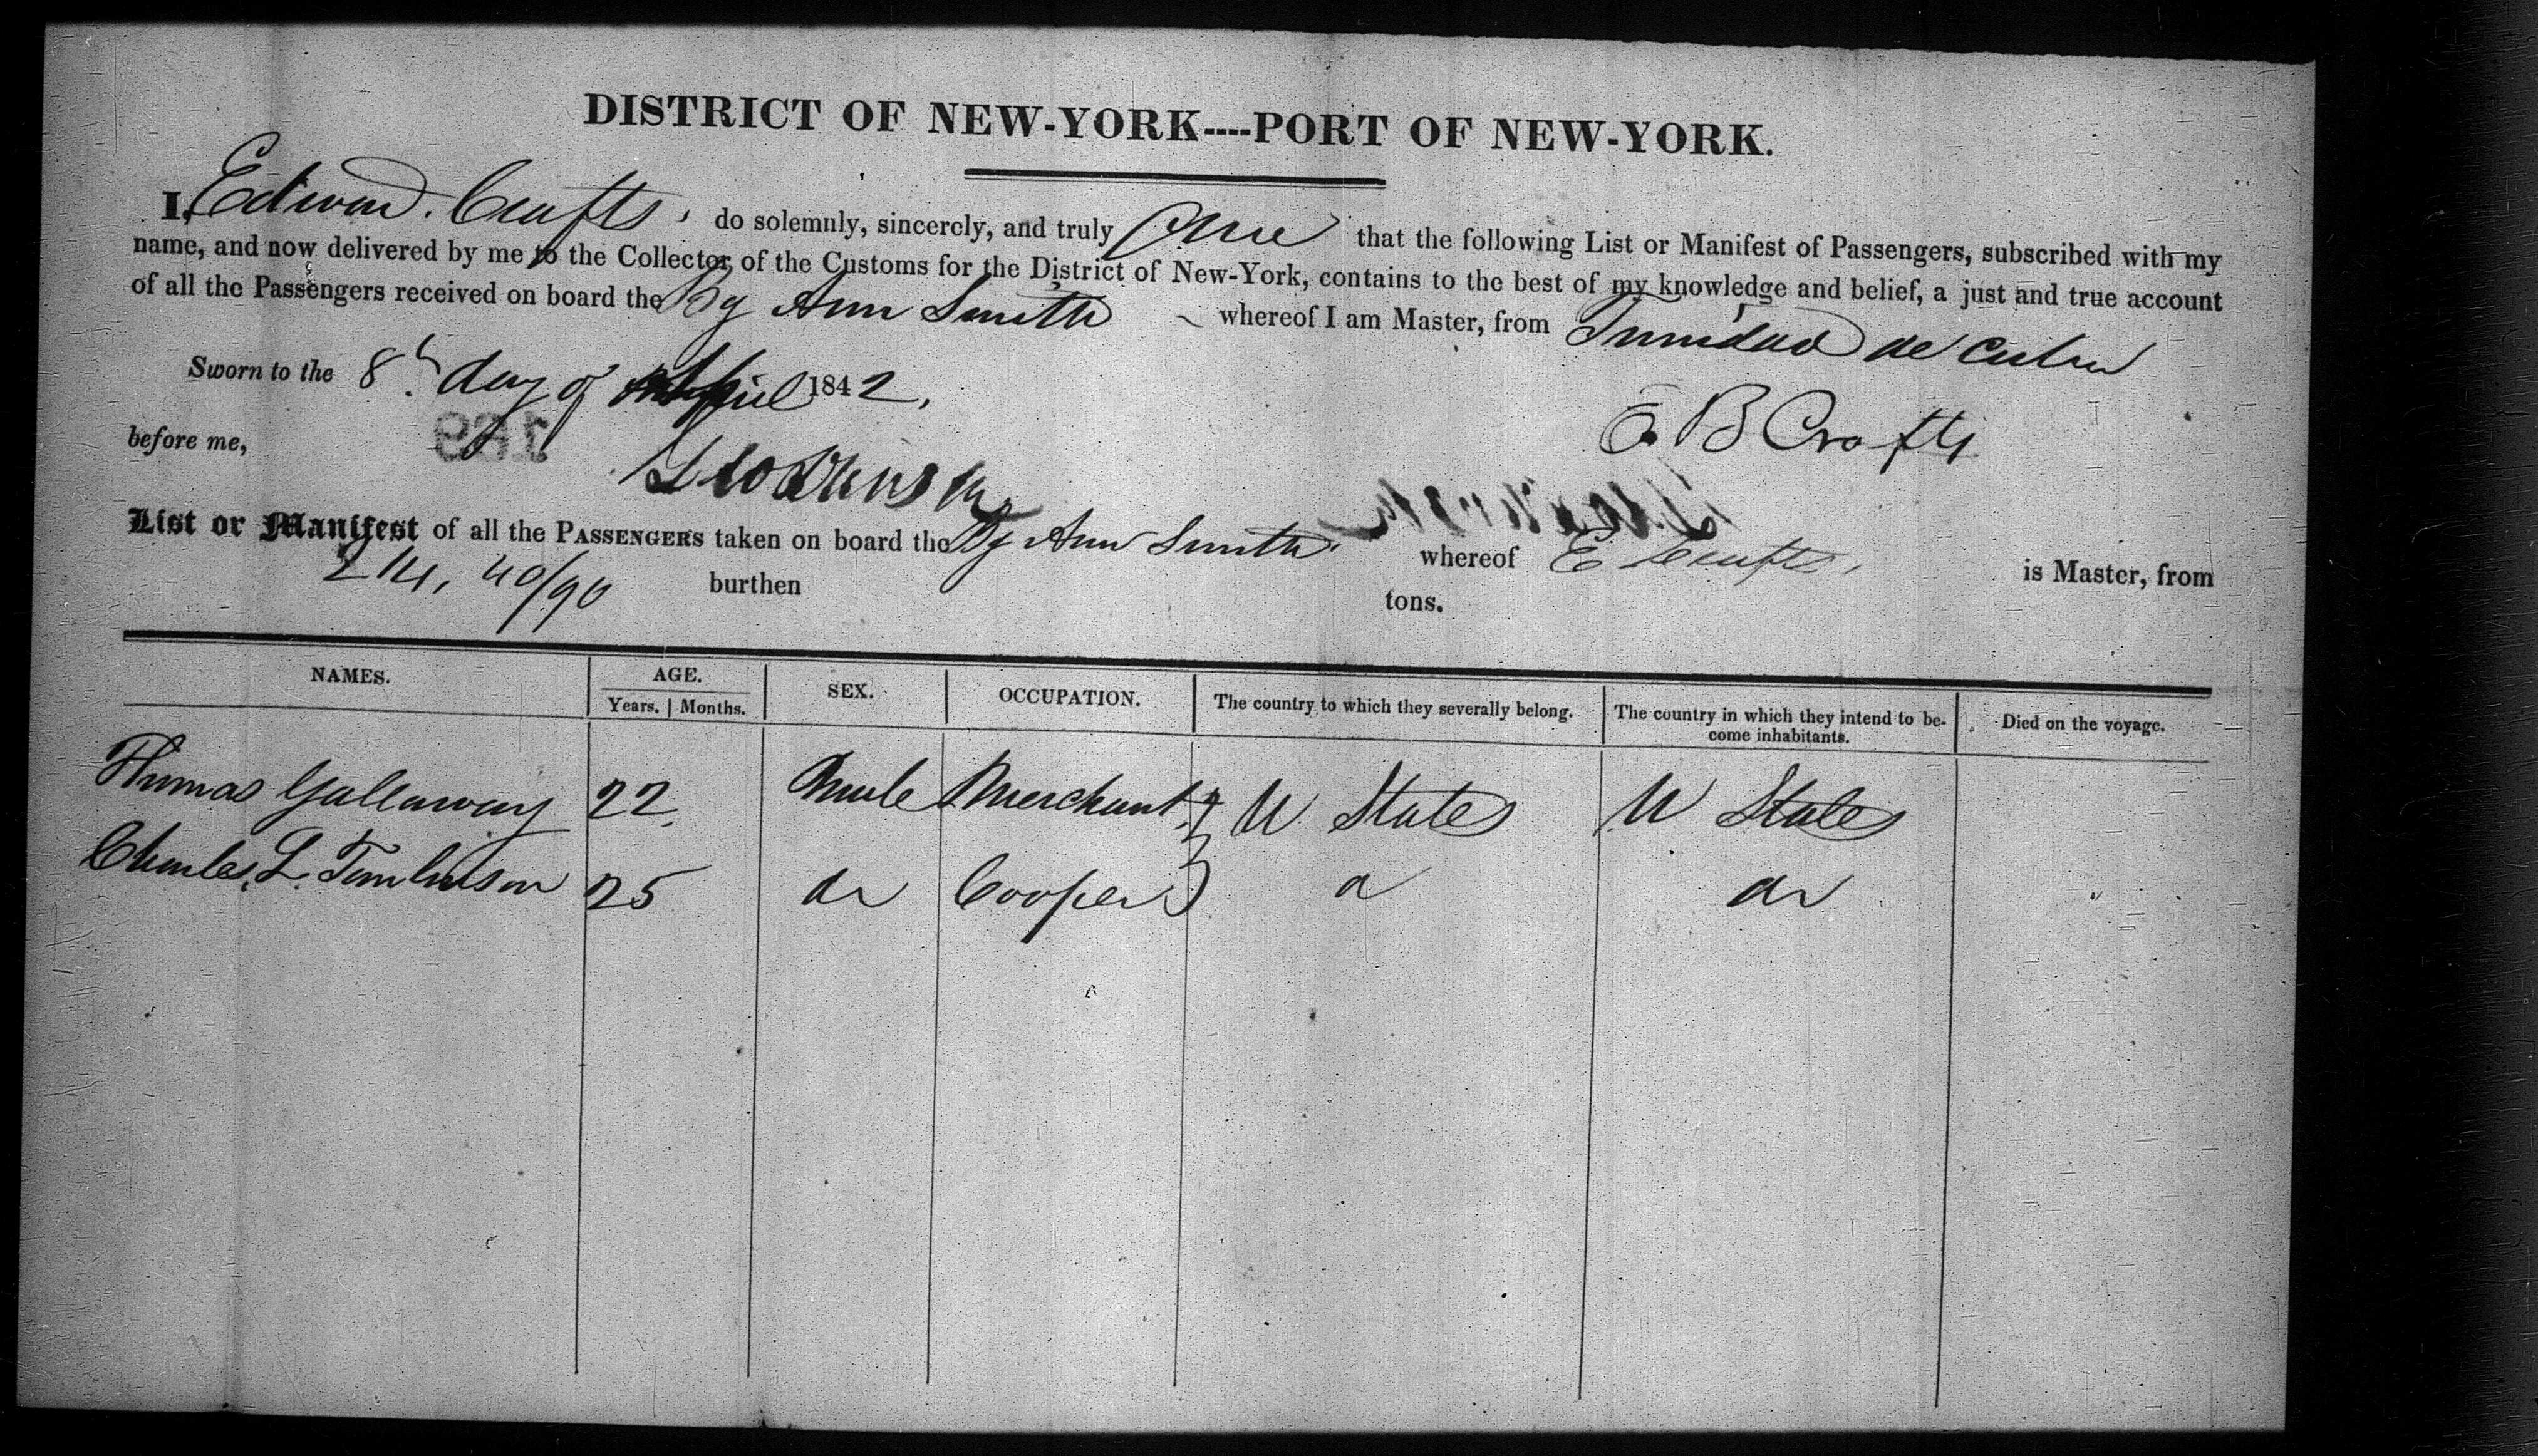 DISTRICT OF NEW-YORK----PORT OF NEW-YORK.
I, Edward Crafts, do solemnly, sincerely, and truly that the following List or Manifest of Passengers, subscribed with my
name, and now delivered by me to the Collector of the Customs for the District of New-York, contains to the best of my knowledge and belief, a just and true account
of all the Passengers received on board the Bg Ann Smith whereof I am Master, from Trinidad de Cuba
Sworn to the 8th day of April 1842,
E B Crafts
before me,
List or Manifest of all the PASSENGERS taken on board the Bg Ann Smith whereof E Crafts, is Master, from
burthen 214, 40/90 tons.
NAMES. AGE. SEX. OCCUPATION. The country to which they severally belong. The country in which they intend to be- Died on the voyage.
Years. | Months. come inhabitants.
Thomas Gallaway 22 Male Merchant U States U States
Charles L. Tomlinson 25 do Cooper do do